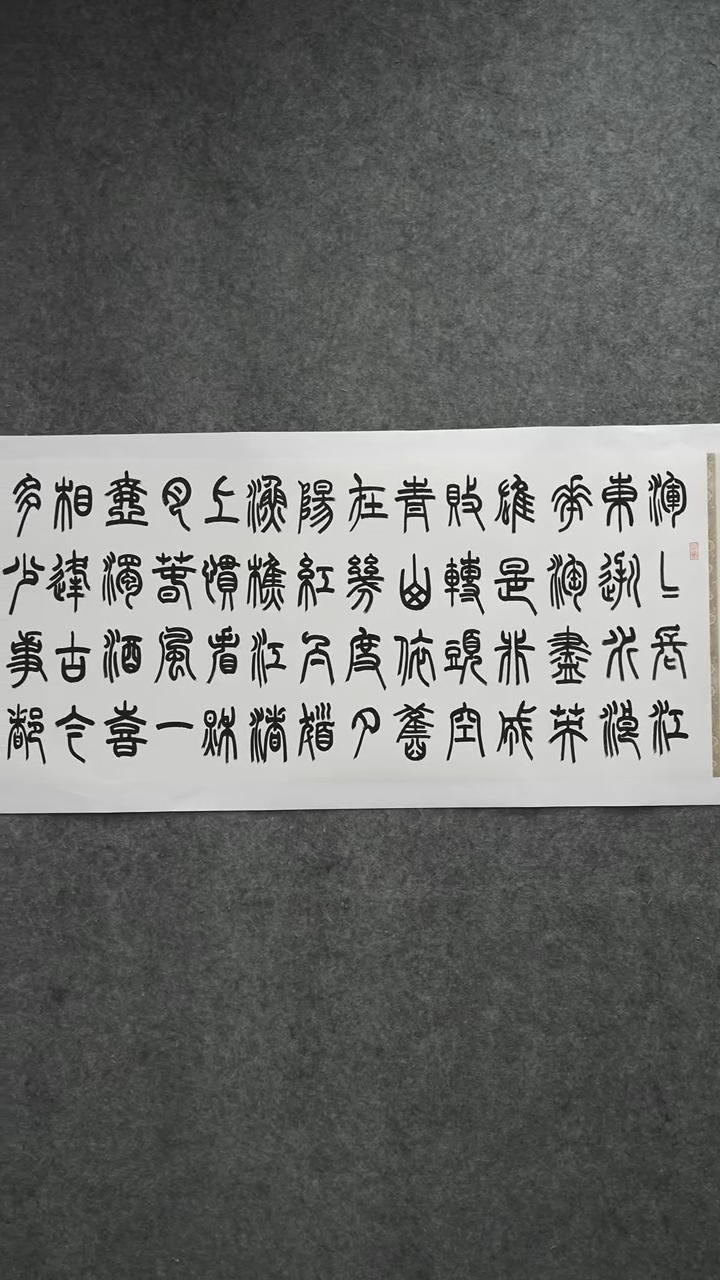 滾〻長江
東逝水浪
華淘盡英
雄是非成
敗轉頭空
青山依舊
在幾度夕
陽紅白髮
漁樵江渚
上慣看秋
月春風一
壺濁酒喜
相逢古今
多少事都